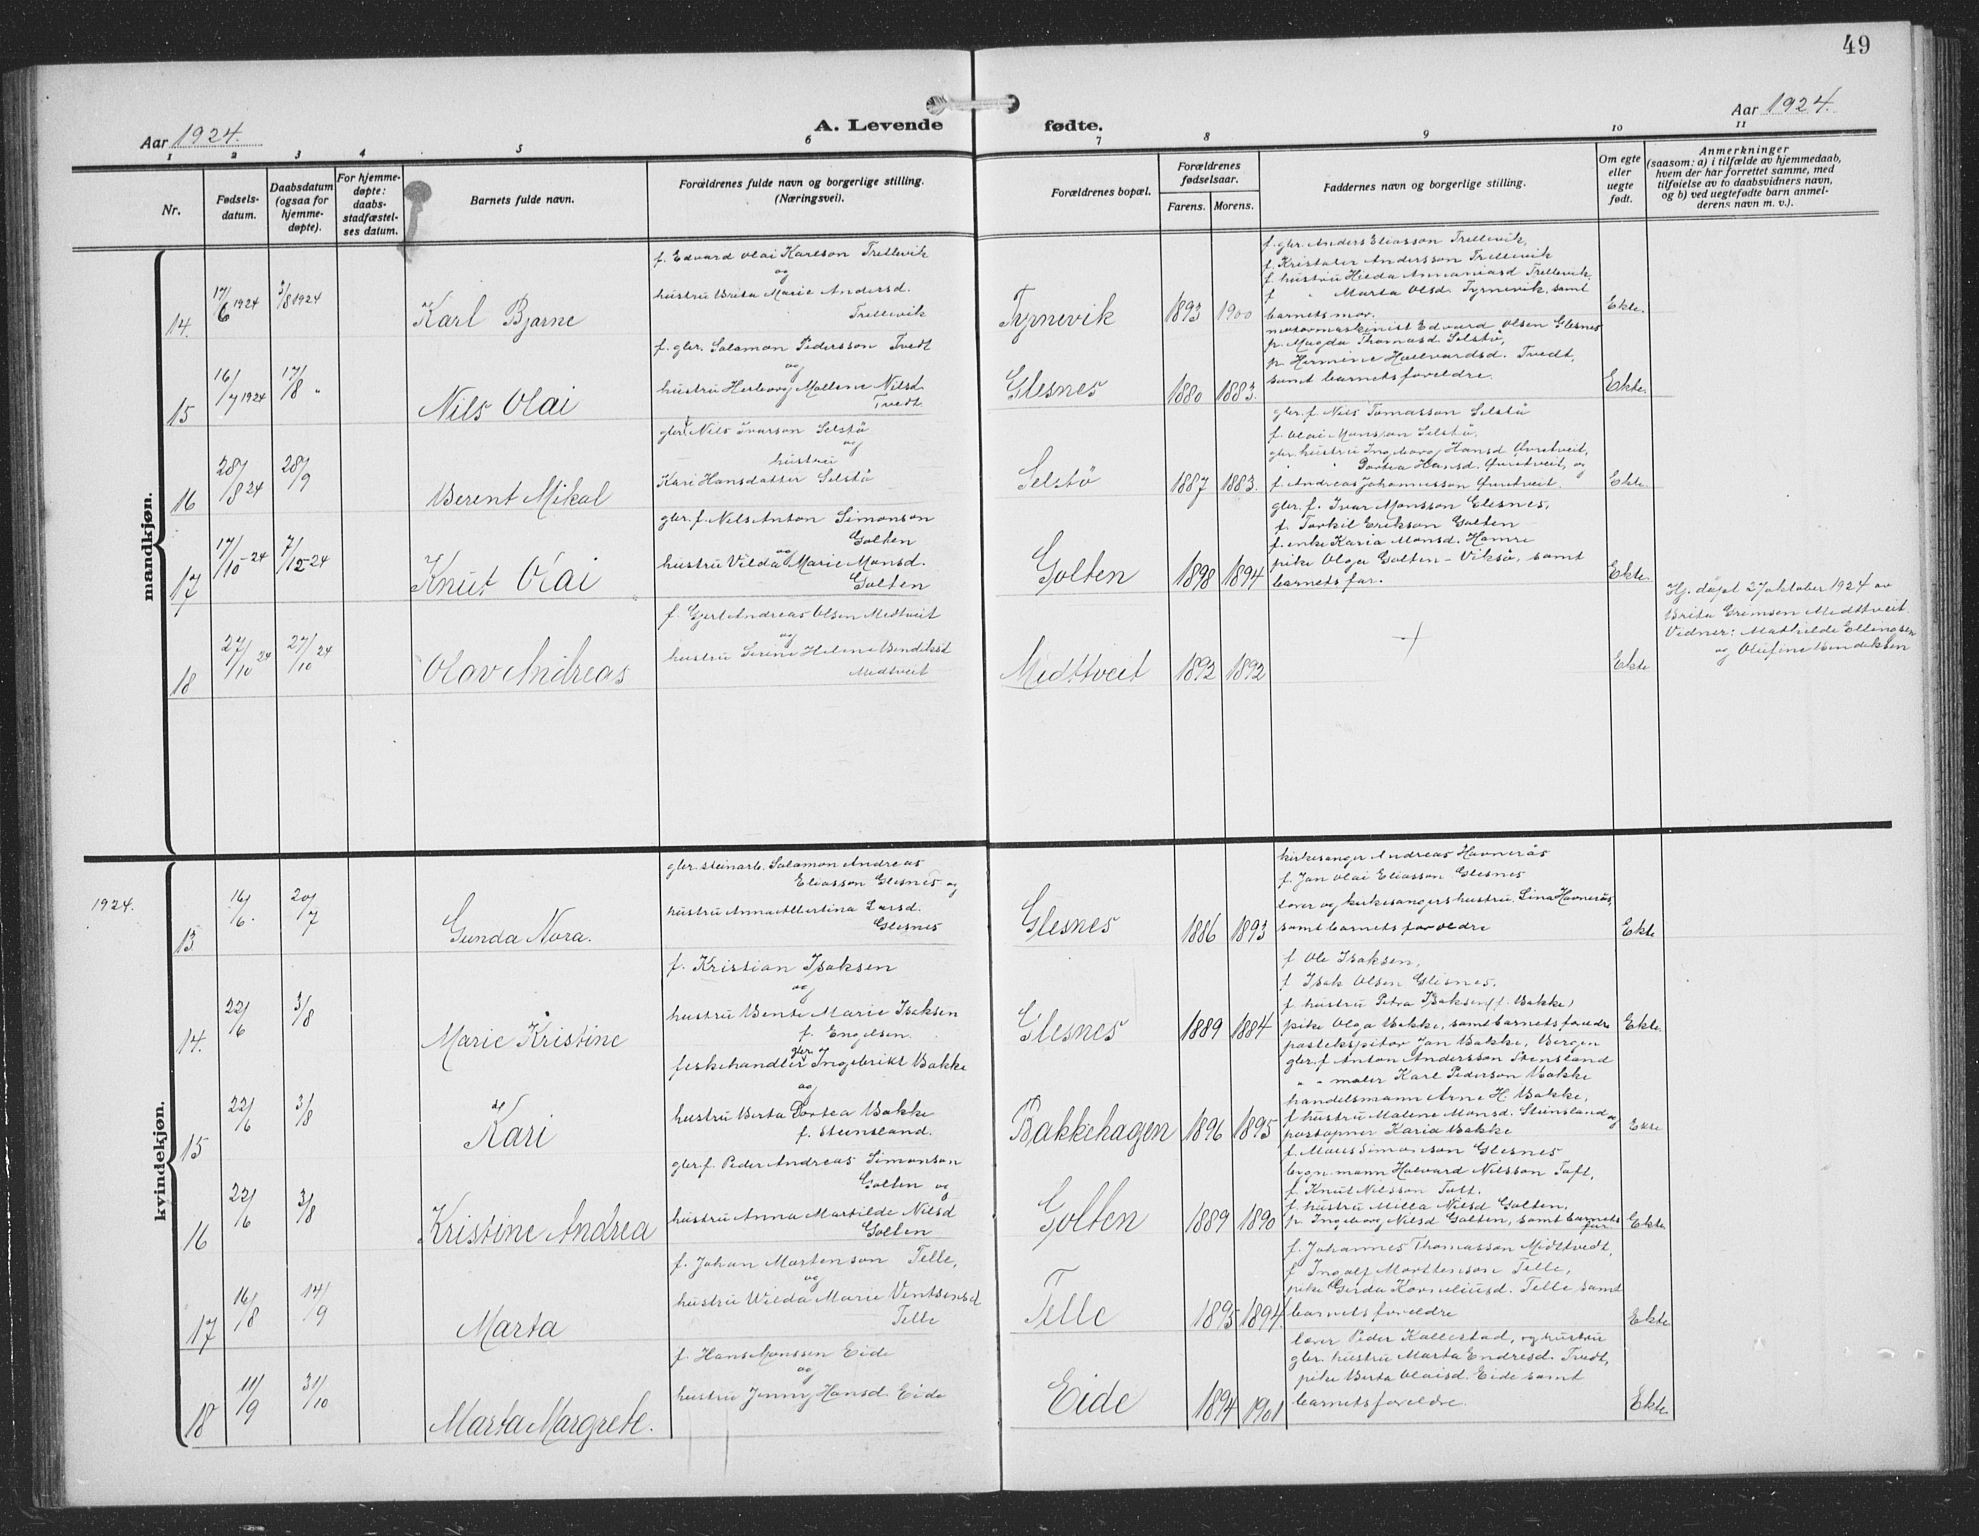 49
Aar 1924.
A. Levende fødte.
Aar 1924.
1 2 3 4 5 6 7 8 9 10 11
Nr.
Fødsels-
datum.
Daabsdatum
(ogsaa for
hjemme-
døpte).
For hjemme-
døpte:
daabs-
stadfæstel-
ses datum.
Barnets fulde navn.
Forældrenes fulde navn og borgerlige stilling.
(Næringsvei).
Forældrenes bopæl.
Forældrenes
fødselsaar.
Farens. Morens.
Faddernes navn og borgerlige stilling.
Om egte
eller
uegte
født.
Anmerkninger
(saasom: a) i tilfælde av hjemmedaab,
hvem der har forrettet samme, med
tilføielse av to daabsvidners navn,
og b) ved uegtefødte barn anmel-
derens navn m. v.).
mandkjøn.
14.
17/6 1924
3/8 1924
Karl Bjarne
f. Edvard Olai Karlson Trellevik
og
hustru Brita Marie Andersd.
Trellevik
Tyrnevik
1893 1900
f. gbr. Anders Eliasson Trellevik,
f. Kristofer Andersson Trellevik
f. hustru Hilda Annaniasd Trellevik.
f " Marta Olsd. Tyrnevik, samt
barnets mor.
Ekte.
15
16/7 1924
17/8 "
Nils Olai
f. gbr. Salamon Pedersson Tvedt
og
hustru Herborg Mallene Nilsd.
Tvedt
Glesnes
1880 1883.
motormaskinist Edvard Olsen Glesnes
p. Magda Thomasd Selstø,
p. Hermine Hallvardsd. Tvedt,
samt barnets foreldre.
Ekte.
16
28/8 24
28/9
Berent Mikal
gbr. Nils Ivarson Selstø
og
hustru
Kari Hansdatter Selstø
Selstø
1887 1883.
gbr. f. Nils Tomasson Selstø
f. Olai Monsson Selstø,
gbr. hustru Ingeborg Hansd Øvretveit,
" " Dortea Hansd. Øvretveit, og
f. Andreas Johannesson Øvretveit.
Ekte.
17
17/10-24
7/12-24
Knut Olai
gbr. f. Nils Anton Simonson
Golten
og
hustru Vilda Marie Monsd.
Golten
Golten
1898 1894
gbr. f. Ivar Monsson Glesnes,
f. Torkil Erikson Golten
f. enke Karia Monsd. Hamre
pike Olga Golten - Viksø, samt
barnets far.
Ekte.
18
27/10 24
27/10 24
Olav Andreas
f. Gjert Andreas Olsen Midtveit
og
hustru Serine Helene Bendiksd
Midtveit
Midttveit
1892 1892
+
Ekte
Hj. døpt 27 oktober 1924 av
Brita Grimsen Midttveit
Vidner: Mathilde Ellingsen
og Olufine Bendiksen
kvindekjøn.
1924.
13
16/6.
20/7
Gunda Nora.
gbr. steinarb. Salamon Andreas
Eliasson Glesnes og
hustru Anna Albertina Larsd.
Glesnes
Glesnes
1886 1893
kirkesanger Andreas Havnerås
f. Jan Olai Eliasson Glesnes
lærer og kirkesangers hustru, Lina Havnerås,
samt barnets foreldre
Ekte
14.
22/6
3/8
Marie Kristine
f. Kristian Isaksen
og
hustru Bente Marie Isaksen
f. Engelsen.
Glesnes
1889 1884
f Ole Isaksen,
f Isak Olsen Glesnes,
f. hustru Petra Isaksen (f. Bakke)
pike Olga Bakke, samt barnets foreldre
Ekte.
15
22/6
3/8
Kari
gbr.
fiskehandler Ingebrikt Bakke
og
hustru Berta Dortea Bakke
f. Steinsland.
Bakkehagen
1896 1895
postekspitør Jan Bakke, Bergen
gbr. f Anton Andersson Stensland
" " maler Karl Pederson Bakke
handelsmann Arne H. Bakke,
f. hustru Malene Monsd. Steinsland og
postopner Karia Bakke
Ekte
16
22/6
3/8
Kristine Andrea
gbr. f. Peder Andreas Simonson
Golten og
hustru Anna Martilde Nilsd
Golten
Golten
1889 1890
f. Mons Simonson Glesnes
bygn. mann Halvard Nilsson Toft,
f. Knut Nilsson Toft.
f. hustru Milla Nilsd Golten,
p. Ingeborg Nilsd Golten, samt barnets
far.
Ekte
17
16/8
14/9
Marta
f. Johan Martenson Telle,
og
hustru Wilda Marie Ventsensd
Telle
Telle
1895 1894.
f. Johannes Thomasson Midttvedt,
f Ingolf Marttenson Telle,
pike Gerda Korneliusd. Telle samt
barnets foreldre
Ekte.
18
11/9
31/10
Marta Margrete.
f. Hans Monssen Eide
og
hustru Jenny Hansd. Eide
Eide
1894 1901
lærer Peder Kallestad, og hustru
gbr. hustru Marta Endresd. Tvedt,
pike Berta Olaisd. Eide samt
barnets foreldre.
Ekte.